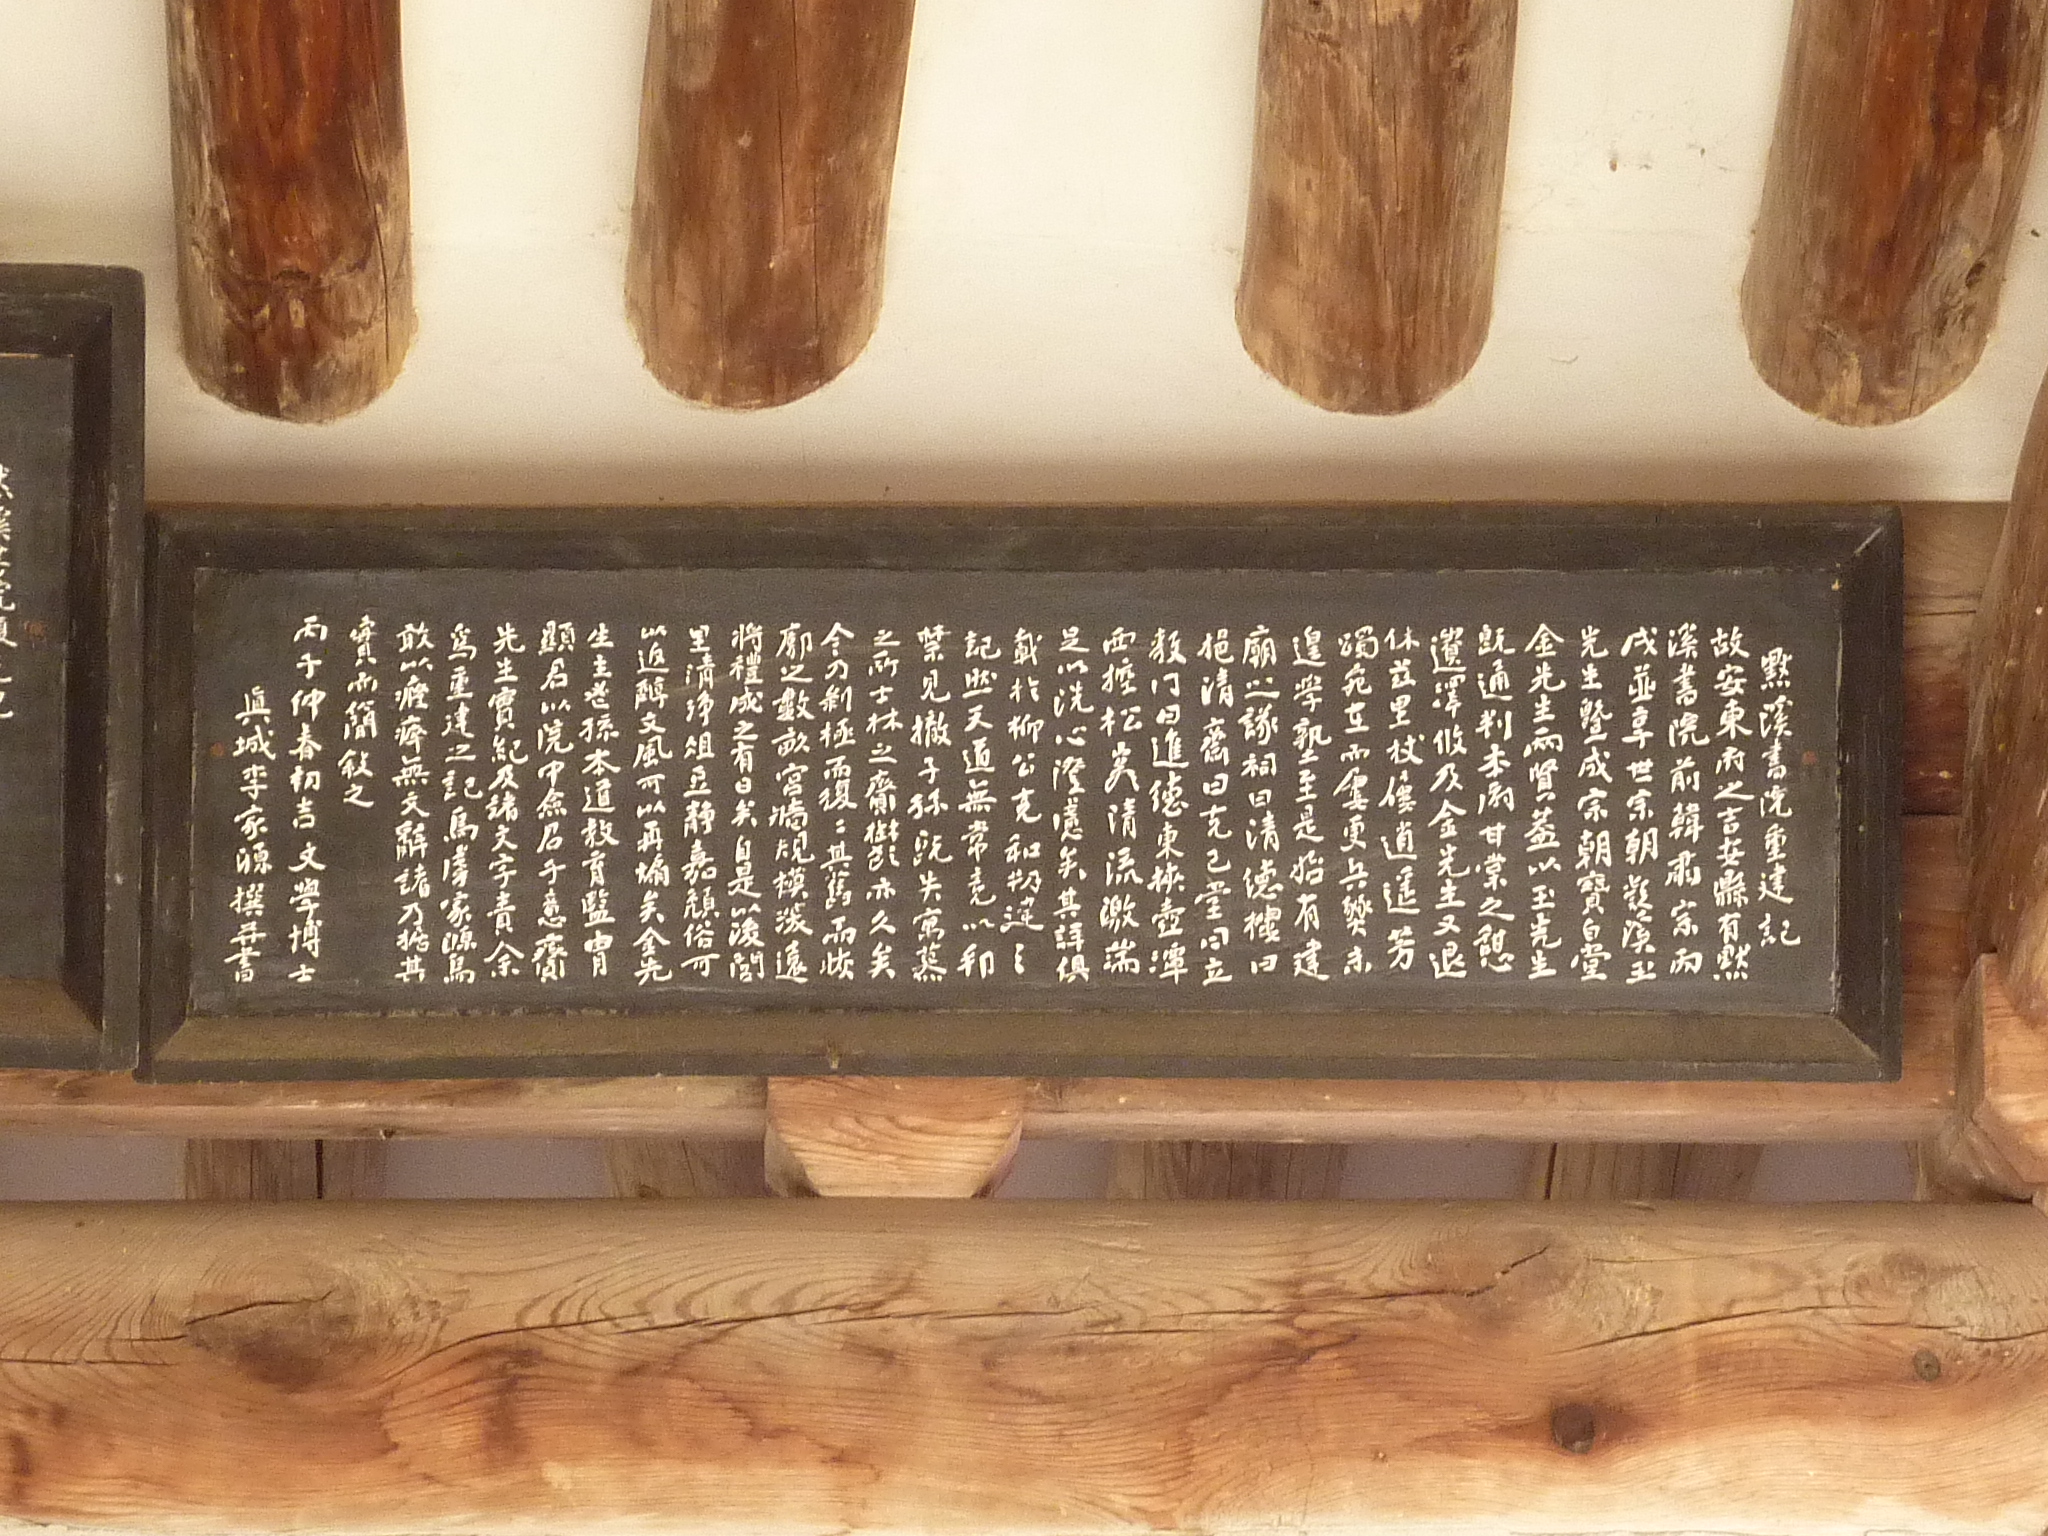 默溪書院重建記
故安東府之吉安縣有默
溪書院前韓肅宗丙
戌並享世宗朝凝溪玉
先生曁成宗朝寶白堂
金先生兩賢蓋以玉先生
旣通判本府甘棠之憩
遺澤攸及金先生又退
休玆里杖屨逍遙芳
躅宛在而屢更兵燹未
遑學塾至是始有建
廟之議祠曰淸德樓曰
挹淸齋曰克己堂曰立
敎門曰進德東挾壺潭
西擁松 淸流激湍
足以洗心澄慮矣其詳俱
載於柳公克和 
記然天道無常竟以邦
禁見撤子孫旣失寓慕
之所士林之齋 亦久矣
今乃剝極而復復其舊而恢
廓之數畝宮墻規模浚遠
將禮成之有日矣自是以後閭
里淸淨俎豆靜嘉頹俗可
以返醇文風可以再煽矣金先
生主老孫本道敎育監 
顯君以院中僉君子意齎
先生實紀及諸文字責余
爲重建之記焉 家源焉
敢以 無文辭諸乃摭其
實而簡敍之
丙子仲春初吉文學博士
眞城李家源撰並書
默溪書院 記